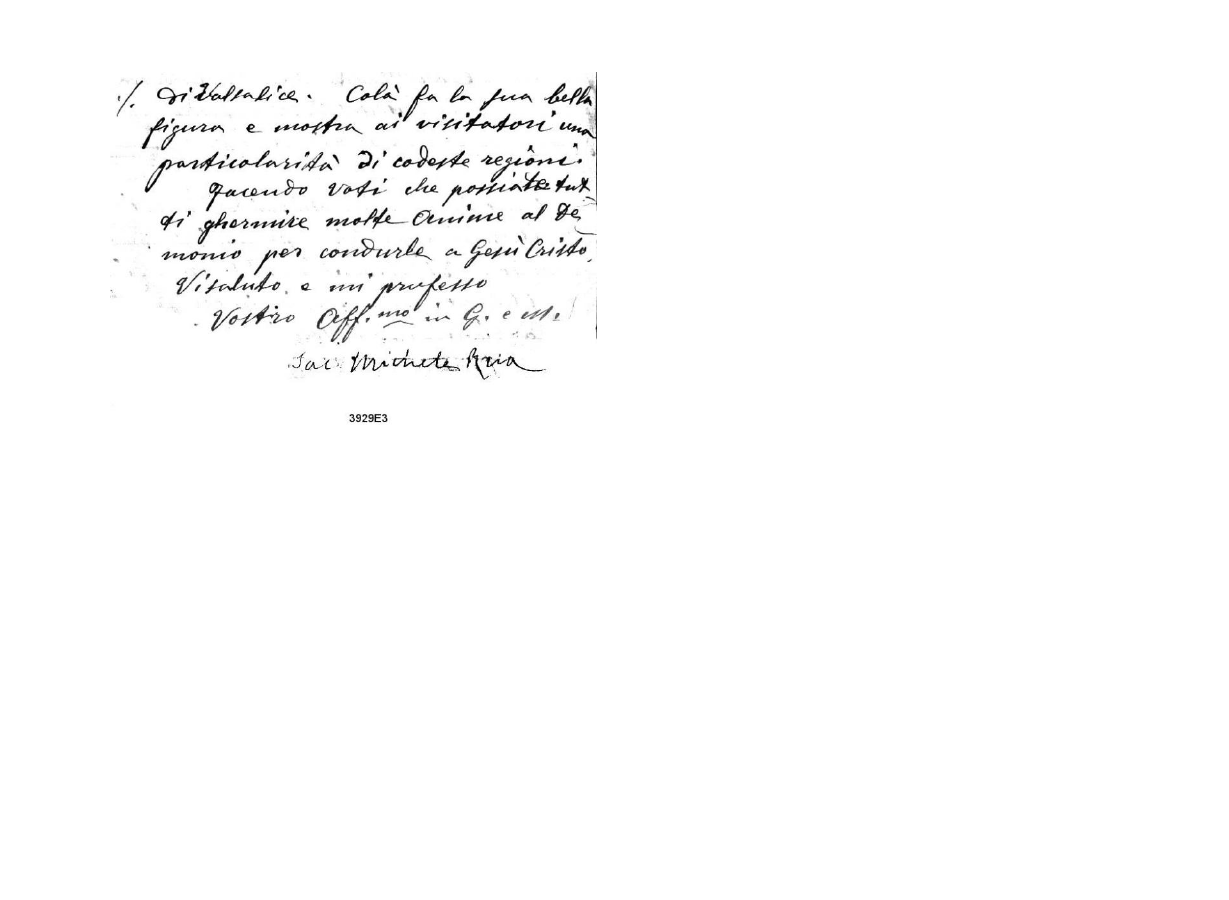 ./. di Valsalice. Colà fa la sua bella
figura e mostra ai visitatori una
particolarità di codeste regioni.
Facendo voti che possiate tut
ti ghermire molte anime al De
monio per condurle a Gesù Cristo,
Vi saluto e mi professo
Vostro Aff.mo in G. e M.
Sac. Michele Rua
3929E3